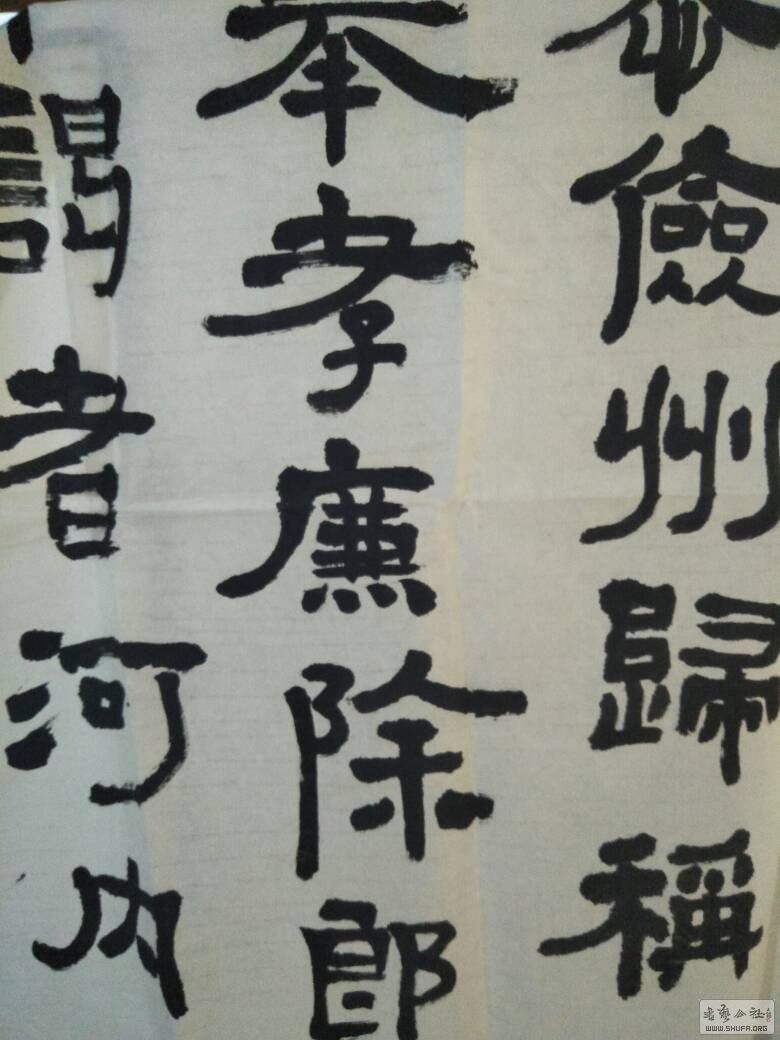 儉州歸稱
孝廉除郎
謁者河內
書藝公社
WWW.SHUFA.ORG